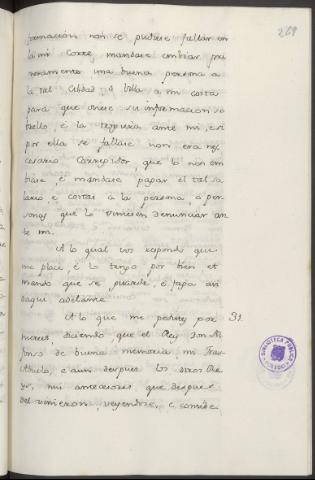 269
formacion non se pudiese fallar en
la mi Corte, mandase embiar pri
meramente una buena persona a
la tal Cibdad, o Villa a mi costa
para que oviese su informacion so
bello, e la trejiese ante mi, e si
por ella se fallase non era nez
cesario Corregidor, que lo non em
biase, e mandase pagar el tal sa
lario, e costas a la persona, o per
sonas que lo viniesen denunciar an
te mi.
A lo qual vos repondo que
me place, e lo tengo por bien et
mando que se guarde, e faga an
daqui adelante.
A lo que me pedistes por 31.
merced, diciendo que el Rey Don Al
fonso de buena memoria, mi Tras
Abuelo, e aun despues los otros Re
yes, mis antecesores, que despues
del vinieron, veyendose, e conside
BIBLIOTECA PUBLICA
TOLEDO